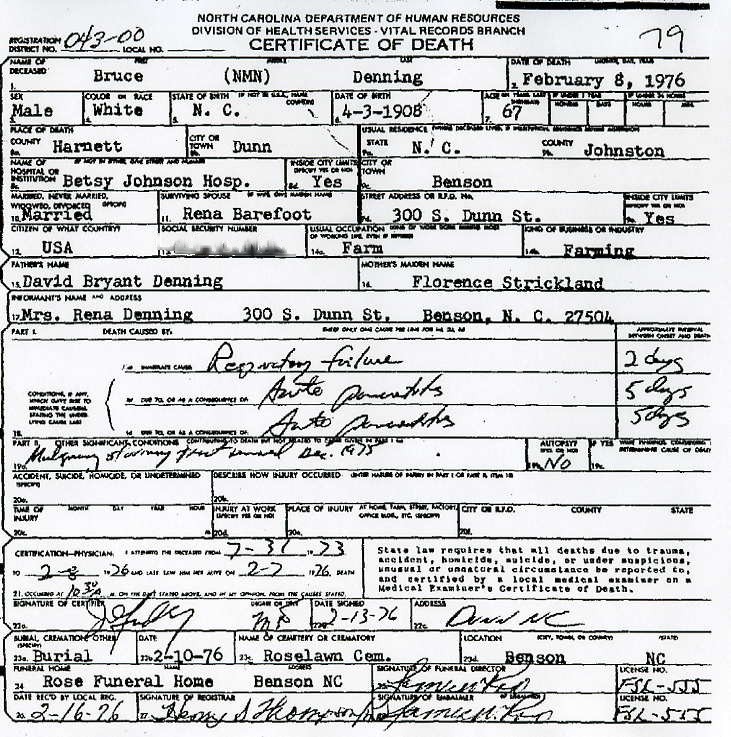 NORTH CAROLINA DEPARTMENT OF HUMAN RESOURCES
DIVISION OF HEALTH SERVICES - VITAL RECORDS BRANCH
REGISTRATION DISTRICT NO. 043-00 LOCAL NO. CERTIFICATE OF DEATH 79
NAME OF DECEASED FIRST MIDDLE LAST DATE OF DEATH
1. Bruce (NMN) Denning 2. February 8, 1976
SEX COLOR OR RACE STATE OF BIRTH DATE OF BIRTH AGE
Male White N. C. 4-3-1908 67
PLACE OF DEATH USUAL RESIDENCE
COUNTY Harnett CITY OR TOWN Dunn STATE N. C. COUNTY Johnston
NAME OF HOSPITAL OR INSTITUTION Betsy Johnson Hosp. INSIDE CITY LIMITS Yes CITY OR TOWN Benson
MARRIED, NEVER MARRIED, WIDOWED, DIVORCED SURVIVING SPOUSE STREET ADDRESS OR R.F.D. No. INSIDE CITY LIMITS
10. Married 11. Rena Barefoot 300 S. Dunn St. Yes
CITIZEN OF WHAT COUNTRY? SOCIAL SECURITY NUMBER USUAL OCCUPATION KIND OF BUSINESS OR INDUSTRY
12. USA 13. 14a. Farm 14b. Farming
FATHER'S NAME MOTHER'S MAIDEN NAME
15. David Bryant Denning 16. Florence Strickland
INFORMANT'S NAME AND ADDRESS
17. Mrs. Rena Denning 300 S. Dunn St. Benson, N. C. 27504
PART I. DEATH CAUSED BY: APPROXIMATE INTERVAL BETWEEN ONSET AND DEATH
IMMEDIATE CAUSE Respiratory failure 2 days
DUE TO, OR AS A CONSEQUENCE OF Acute pancreatitis 5 days
18. DUE TO, OR AS A CONSEQUENCE OF Acute pancreatitis 5 days
PART II. OTHER SIGNIFICANT CONDITIONS AUTOPSY
19a. Dec. 1975 No
ACCIDENT, SUICIDE, HOMICIDE, OR UNDETERMINED DESCRIBE HOW INJURY OCCURRED
20a. 20b.
TIME OF INJURY MONTH DAY YEAR HOUR INJURY AT WORK PLACE OF INJURY CITY OR R.F.D. COUNTY STATE
CERTIFICATION-PHYSICIAN: I ATTENDED THE DECEASED FROM 7-31 1973
TO 2-8 1976 AND LAST SAW HIM HER ALIVE ON 2-7 1976. DEATH
21. OCCURRED AT
State law requires that all deaths due to trauma,
accident, homicide, suicide, or under suspicious,
unusual or unnatural circumstance be reported to,
and certified by a local medical examiner on a
Medical Examiner's Certificate of Death.
SIGNATURE OF CERTIFIER DATE SIGNED ADDRESS
22a. 2-13-76 22c. Dunn NC
BURIAL, CREMATION, OTHER DATE NAME OF CEMETERY OR CREMATORY LOCATION (STATE)
23a. Burial 23b. 2-10-76 23c. Roselawn Cem. 23d. Benson NC
FUNERAL HOME NAME ADDRESS SIGNATURE OF FUNERAL DIRECTOR LICENSE NO.
24 Rose Funeral Home Benson NC FSL-555
DATE REC'D BY LOCAL REG. SIGNATURE OF REGISTRAR SIGNATURE OF EMBALMER LICENSE NO.
26. 2-16-76 27. Henry S Thompson FSL-555